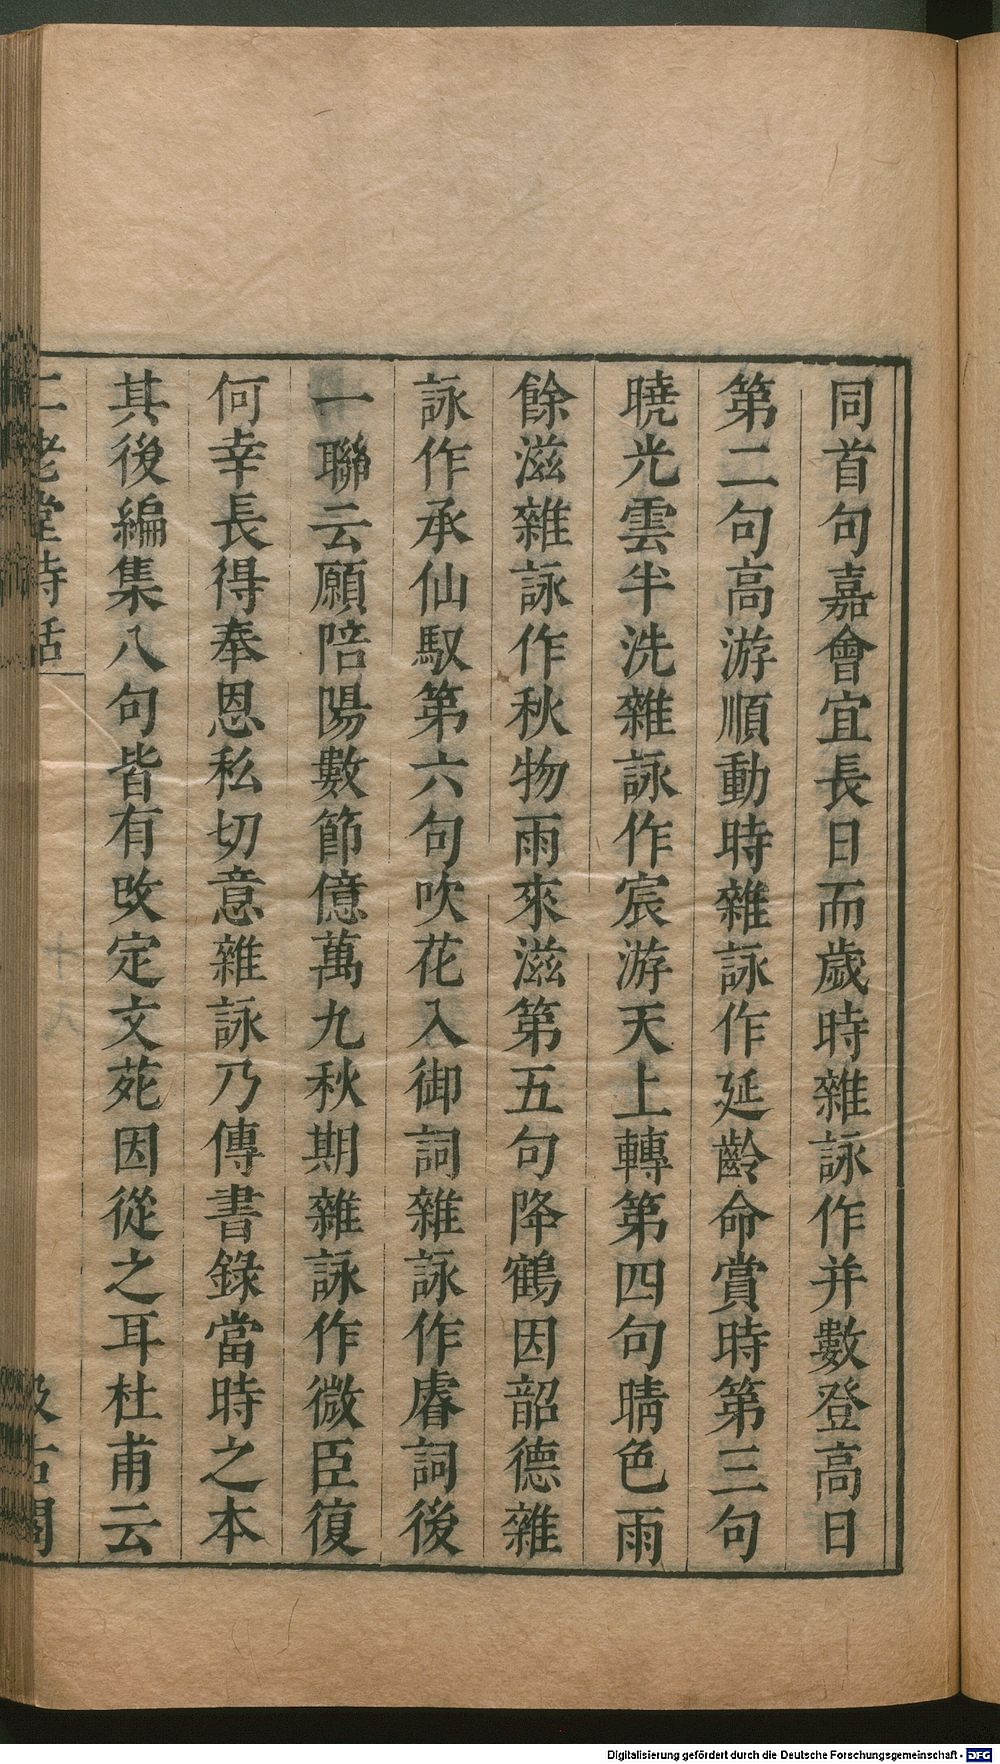 同首句嘉會宜長日而歲時雜詠作并數登高日
第二句高游順動時雜詠作延齡命賞時第三句
曉光雲半洗雜詠作宸游天上轉第四句晴色雨
餘滋雜詠作秋物雨來滋第五句降鶴因韶德雜
詠作承仙馭第六句吹花入御詞雜詠作睿詞後
一聯云願陪陽數節億萬九秋期雜詠作微臣復
何幸長得奉恩私切意雜詠乃傳書錄當時之本
其後編集八句皆有改定文苑因從之耳杜甫云
二老堂詩話
汲古閣
Digitalisierung gefördert durch die Deutsche Forschungsgemeinschaft - DFG